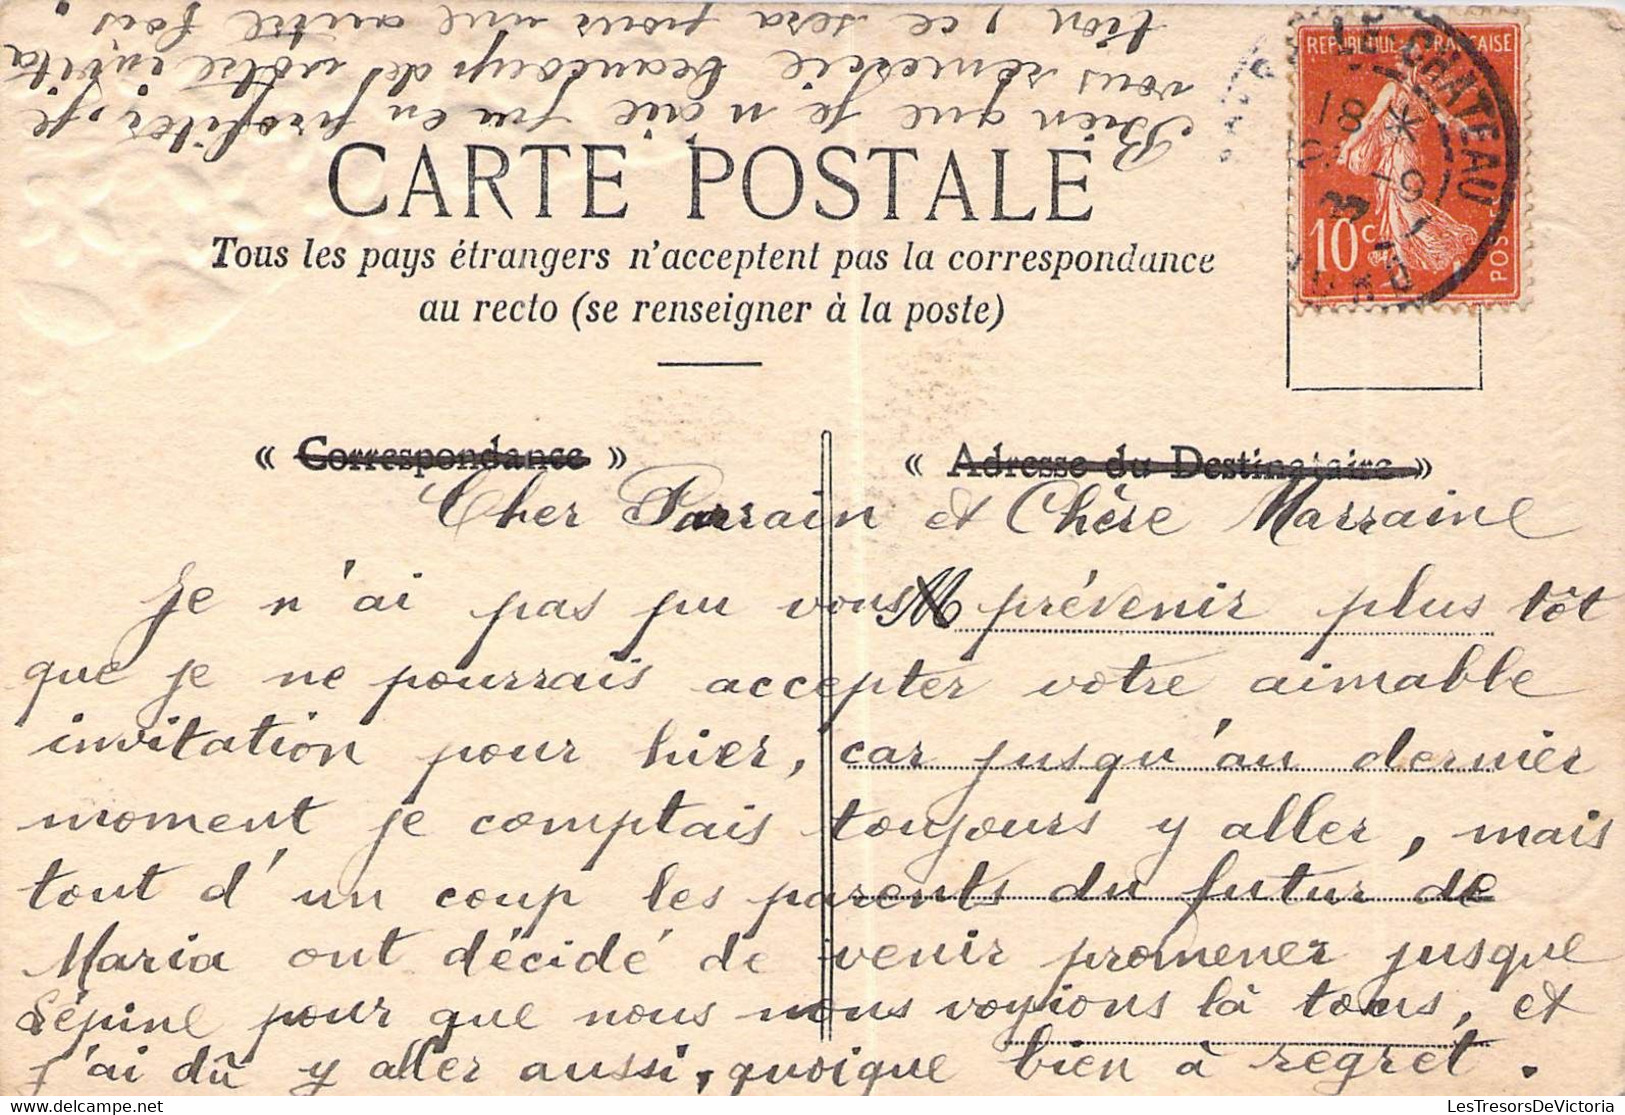 CARTE POSTALE
Tous les pays étrangers n'acceptent pas la correspondance
au recto (se renseigner à la poste)
REPUBLIQUE FRANÇAISE
10 c
POSTES
LE-CHATEAU
18 *
« Correspondance »
« Adresse du Destinataire »
Cher Parrain et Chère Marraine
Je n'ai pas pu vous prévenir plus tôt
que je ne pourrais accepter votre aimable
invitation pour hier, car jusqu'au dernier
moment je comptais toujours y aller, mais
tout d'un coup les parents du futur de
Maria ont décidé de venir promener jusque
Lépine pour que nous nous voyions là tous, et
j'ai dû y aller aussi, quoique bien à regret.
Bien que je n'aie pu en profiter, je
vous remercie beaucoup de votre invita
tion, ce sera pour une autre fois.
LesTresorsDeVictoria.com